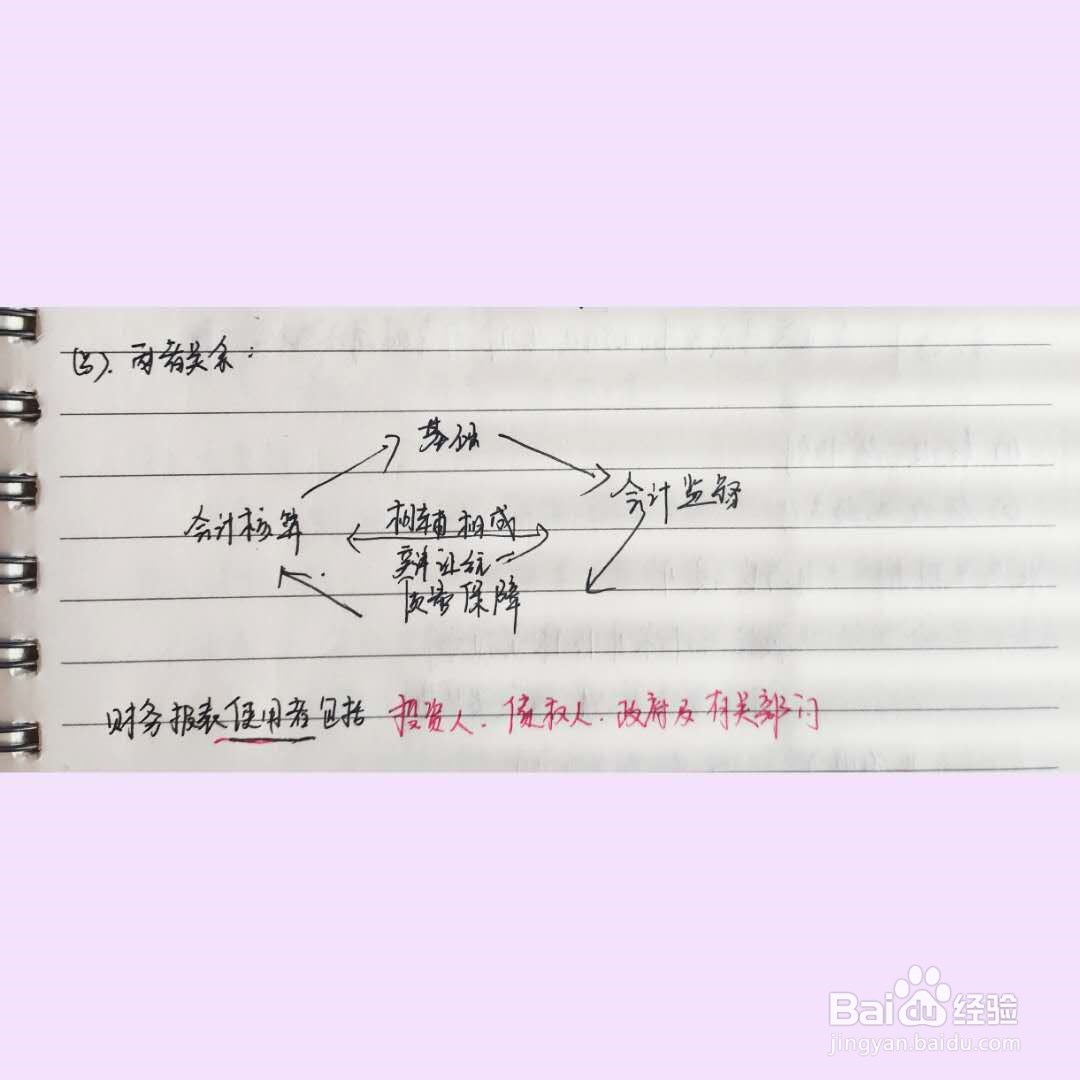 (3). 两者关系:
基础
会计监督
会计核算
相辅相成
辩证统一
质量保障
财务报表使用者包括 投资人、债权人、政府及有关部门
Baidu经验
jingyan.baidu.com